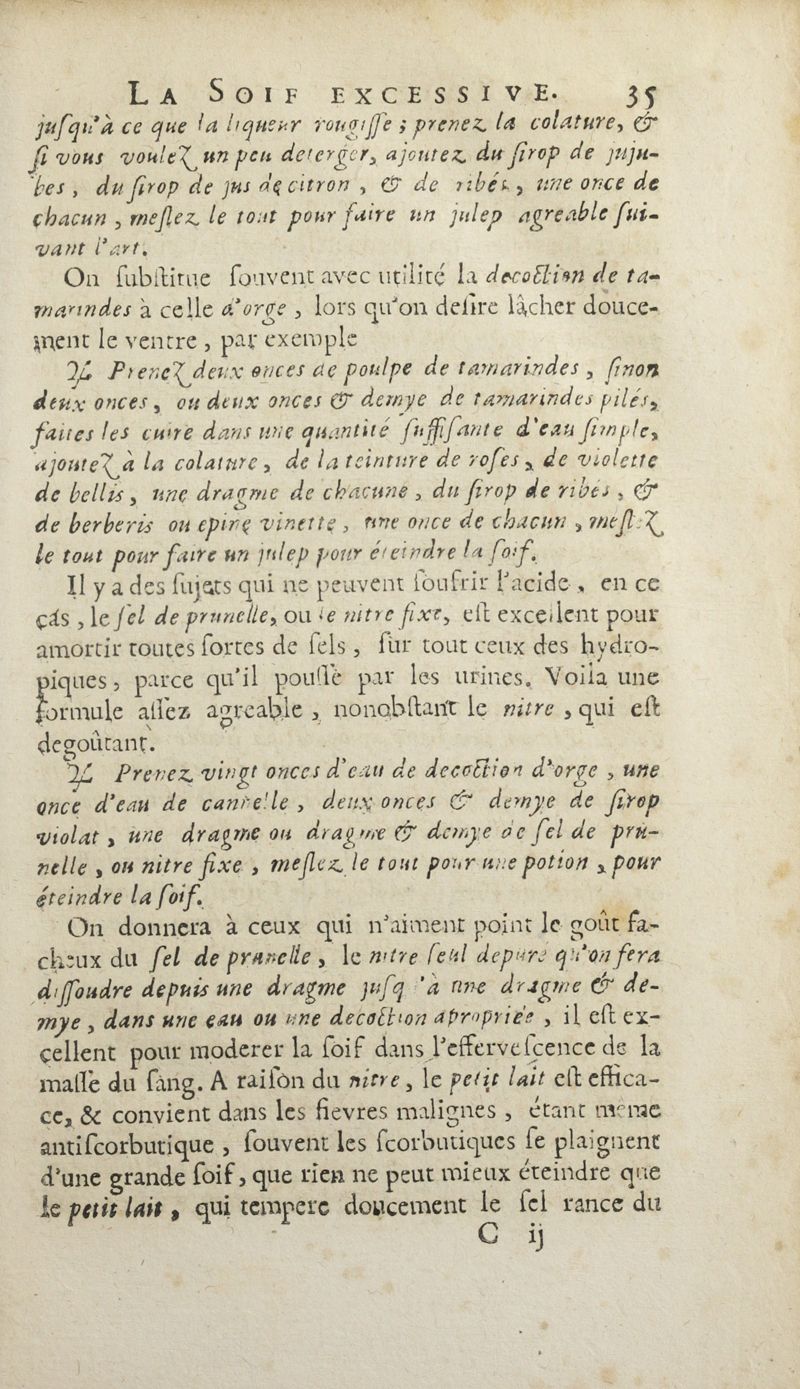 LA SOIF EXCESSIVE. 35
juſqu'à ce que la liqueur rougiſſe ; prenez la colature, &
ſi vous voulez un peu deterger, ajoutez du ſirop de juju-
bes , du ſirop de jus de citron , & de ribés , une once de
chacun , meſlez le tout pour faire un julep agreable ſui-
vant l'art.
On ſubſtitue ſouvent avec utilité la decoction de ta-
marindes à celle d'orge , lors qu'on deſire lâcher douce-
ment le ventre , par exemple
℞ Prenez deux onces de poulpe de tamarindes , ſinon
deux onces , ou deux onces & demye de tamarindes pilés,
faites les cuire dans une quantité ſuffiſante d'eau ſimple,
ajoutez à la colature , de la teinture de roſes , de violette
de bellis , une dragme de chacune , du ſirop de ribés , &
de berberis ou epine vinette , une once de chacun , meſlez
le tout pour faire un julep pour éteindre la ſoif.
Il y a des ſujets qui ne peuvent ſoufrir l'acide , en ce
cás , le ſel de prunelle, ou le nitre fixe, eſt excellent pour
amortir toutes ſortes de ſels , ſur tout ceux des hydro-
piques , parce qu'il pouſſe par les urines. Voila une
formule aſſez agreable , nonobſtant le nitre , qui eſt
degoûtant.
℞ Prenez vingt onces d'eau de decoction d'orge , une
once d'eau de cannelle , deux onces & demye de ſirop
violat , une dragme ou dragme & demye de ſel de pru-
nelle , ou nitre fixe , meſlez le tout pour une potion , pour
éteindre la ſoif.
On donnera à ceux qui n'aiment point le goût fa-
cheux du ſel de prunelle , le nitre ſeul depuré qu'on fera
diſſoudre depuis une dragme juſq 'à une dragme & de-
mye , dans une eau ou une decoction apropriée , il eſt ex-
cellent pour moderer la ſoif dans l'efferveſcence de la
maſſe du ſang. A raiſon du nitre , le petit lait eſt effica-
ce, & convient dans les fievres malignes , étant même
antiſcorbutique , ſouvent les ſcorbutiques ſe plaignent
d'une grande ſoif , que rien ne peut mieux éteindre que
le petit lait , qui tempere doucement le ſel rance du
C ij